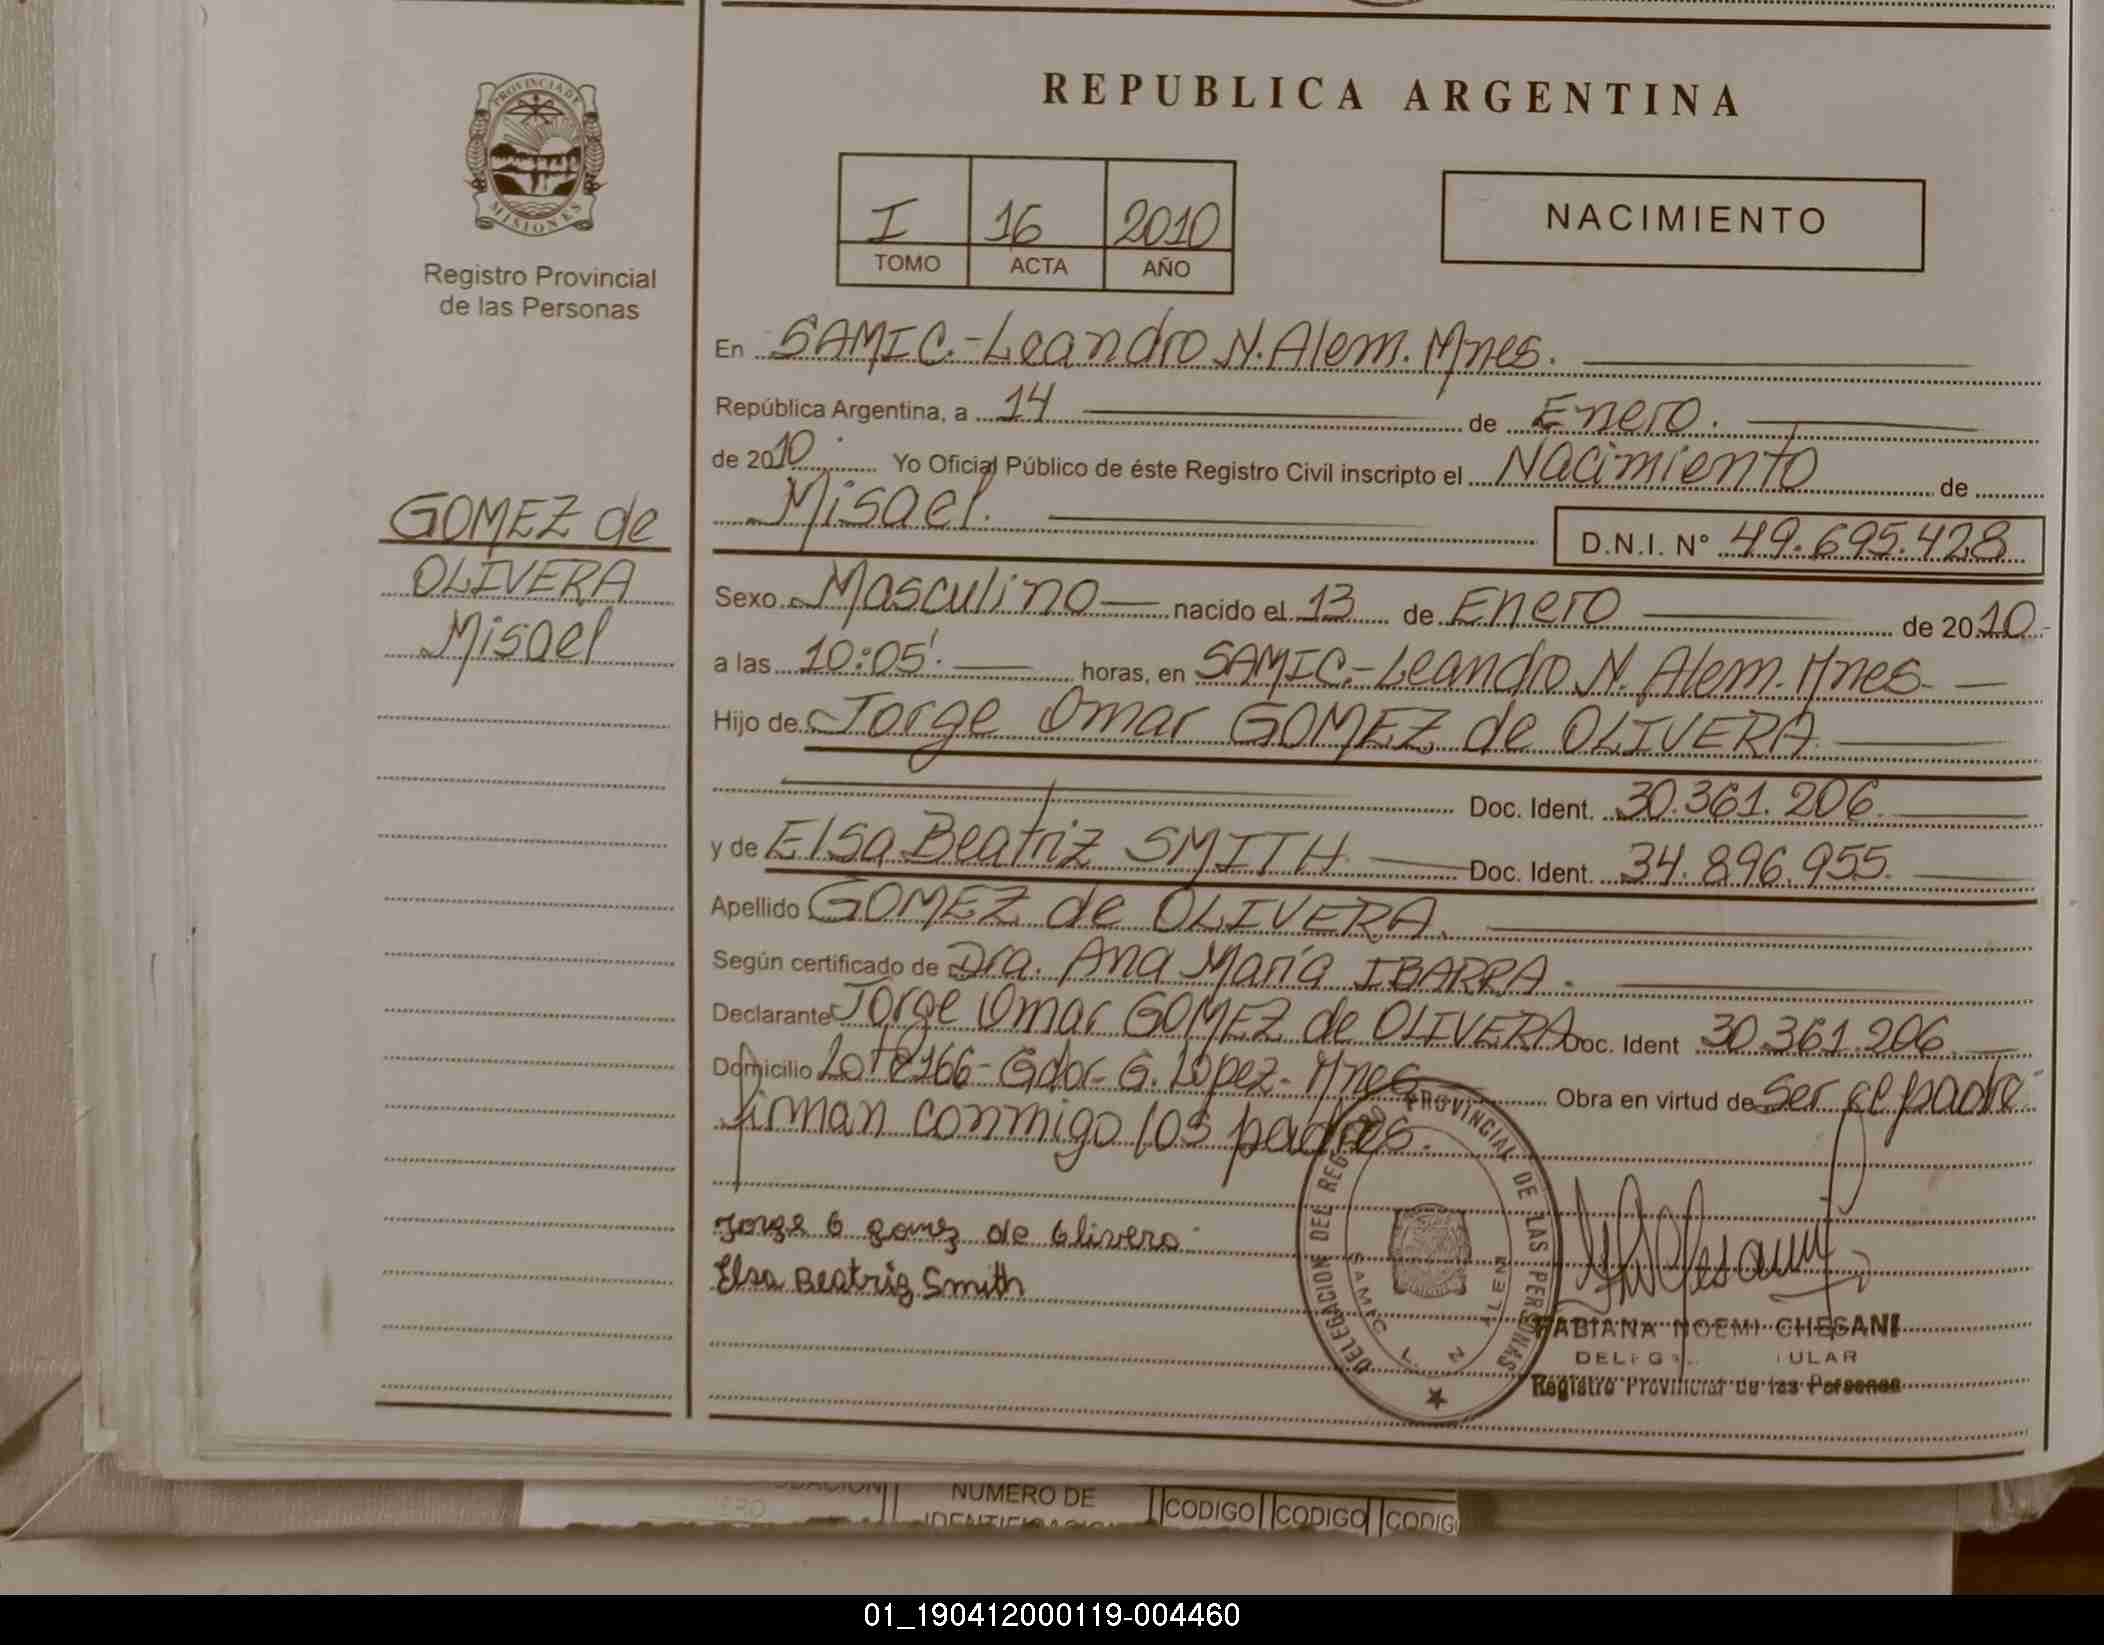 PROVINCIA DE
MISIONES
Registro Provincial
de las Personas
GOMEZ de
OLIVERA
Misael
REPUBLICA ARGENTINA
I 16 2010
TOMO ACTA AÑO
NACIMIENTO
En SAMIC.-Leandro N. Alem. Mnes.
República Argentina, a 14 de Enero.
de 2010. Yo Oficial Público de éste Registro Civil inscripto el Nacimiento de
Misael. D.N.I. N° 49.695.428
Sexo Masculino nacido el 13 de Enero de 2010.-
a las 10:05'. horas, en SAMIC.-Leandro N. Alem. Mnes.
Hijo de Jorge Omar GOMEZ de OLIVERA.
Doc. Ident. 30.361.206.
y de Elsa Beatriz SMITH. Doc. Ident. 34.896.955.
Apellido GOMEZ de OLIVERA.
Según certificado de Dra. Ana María IBARRA.
Declarante Jorge Omar GOMEZ de OLIVERA Doc. Ident 30.361.206.
Domicilio Lote 166-Gdor-G. López-Mnes. Obra en virtud de ser el padre
firman conmigo los padres.
Jorge O gomez de Olivera
Elsa Beatriz Smith
DELEGACION DEL REG PROVINCIAL DE LAS PERSONAS
SAMIC L. N ALEM
FABIANA NOEMI CHESANI
Registro Provincial de las Personas
NUMERO DE
CODIGO CODIGO CODIG
01_190412000119-004460